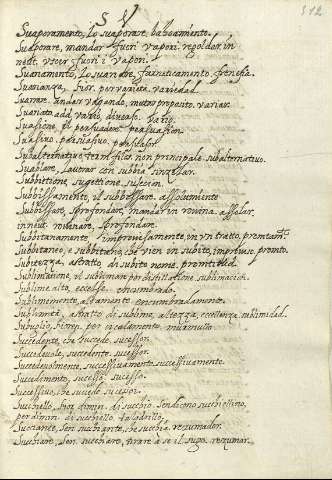 S V
312
Suaporamento, lo suaporare, baboamiento.
Suaporare, mandar fuori vapori. regoldar. in
neut. vscir fuori i vapori.
Suariamento, lo suariare, farneticamento, frenesia.
Suarianza, Fior. per varietà, variedad.
Suariare, andar vagando, mutar proposito. variar.
Suariato, add. vario, diuerso. vario.
Suasione, il persuadere. persuasion.
Suasiuo, persuasiuo.
Subalternatiuo, non principale. subalternatiuo.
Subbiare, lauorar con subbia. sinzelar.
Subbiettione, suggettione, sujecion.
Subbissamento, il subbissare. assolamiento
Subbissare, sprofondare, mandar in rouina. assolar.
in neut. ruinare, sprofondare.
Subitanamente, improuisamente, in vn tratto,
Subitaneo, e subbitano, che vien in subito, improuiso. promto.
Subitezza, astratto di subito nome, promtitud.
Sublimatione, il sublimar per distillatione. sublimacion.
Sublime, alto, eccelso. encumbrado.
Sublimemente, altamente. encumbradamente.
Sublimità, astratto di sublime, altezza, eccellenza. sublimidad.
Succedente, che succede, sucessor.
Succedeuole, succedente. sucessor.
Succedeuolmente, successiuamente. sucessiuamente.
Succedimento, successo. sucesso.
Successiuo, che succede. sucessor.
Succhiello, dimin. di succhio.
per dimin. di succhiello.
Succiante, che succhia.
Succhiare, Sen. succhiare, tirare à se il sugo.